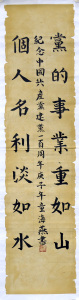 黨的事業重如山
個人名利淡如水
紀念中國共產黨建黨一百周年庚子年海燕書